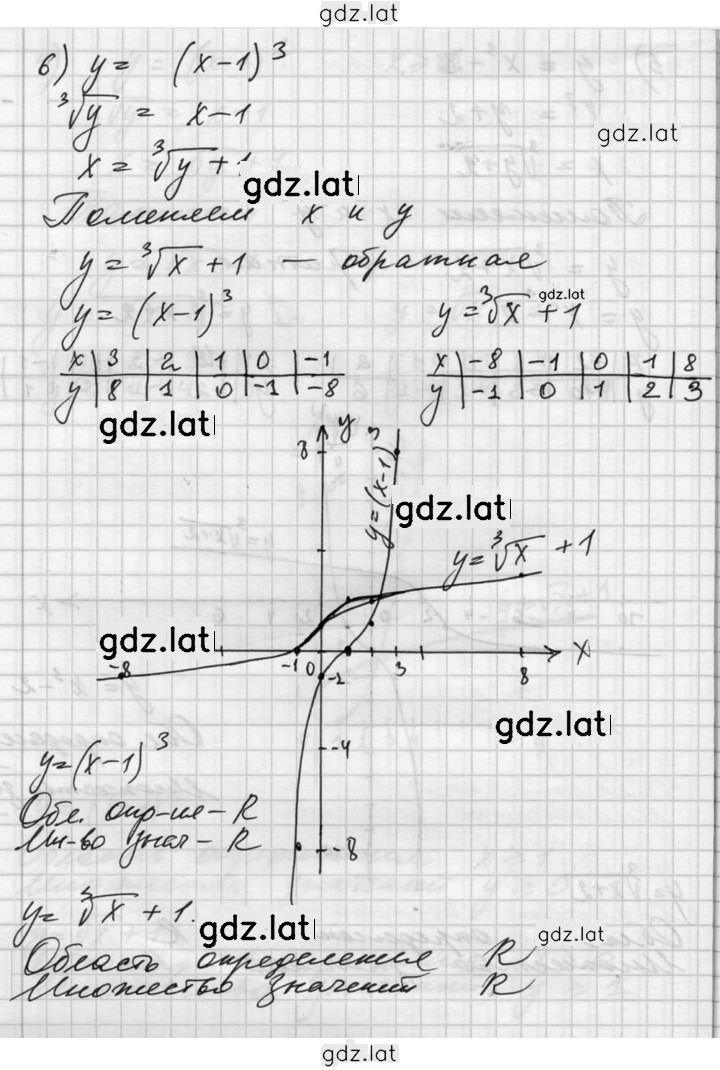 gdz.lat
6) y = (x-1)³
∛y = x-1
gdz.lat
x = ∛y + 1
gdz.lat
Поменяем x и y
y = ∛x + 1 — обратная
gdz.lat
y = (x-1)³ y = ∛x + 1
x | 3 | 2 | 1 | 0 | -1
y | 8 | 1 | 0 | -1 | -8
x | -8 | -1 | 0 | 1 | 8
y | -1 | 0 | 1 | 2 | 3
gdz.lat
y
8
y=(x-1)³
gdz.lat
y = ∛x + 1
gdz.lat
-8 -1 0 -1 3 8 x
gdz.lat
-4
y=(x-1)³
Обл. опр-ие - R
Мн-во знач - R
-8
gdz.lat
y = ∛x + 1.
gdz.lat
gdz.lat
Область определения R
Множество значений R
gdz.lat